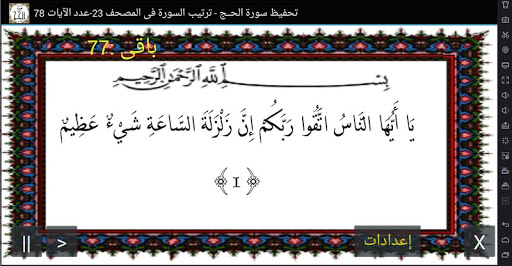 تحفيظ سورة الحـج - ترتيب السورة فى المصحف 23-عدد الآيات 78
باقى :77
بِسْمِ اللَّهِ الرَّحْمَٰنِ الرَّحِيمِ
يَا أَيُّهَا النَّاسُ اتَّقُوا رَبَّكُمْ إِنَّ زَلْزَلَةَ السَّاعَةِ شَيْءٌ عَظِيمٌ
﴿1﴾
|| > إعدادات X